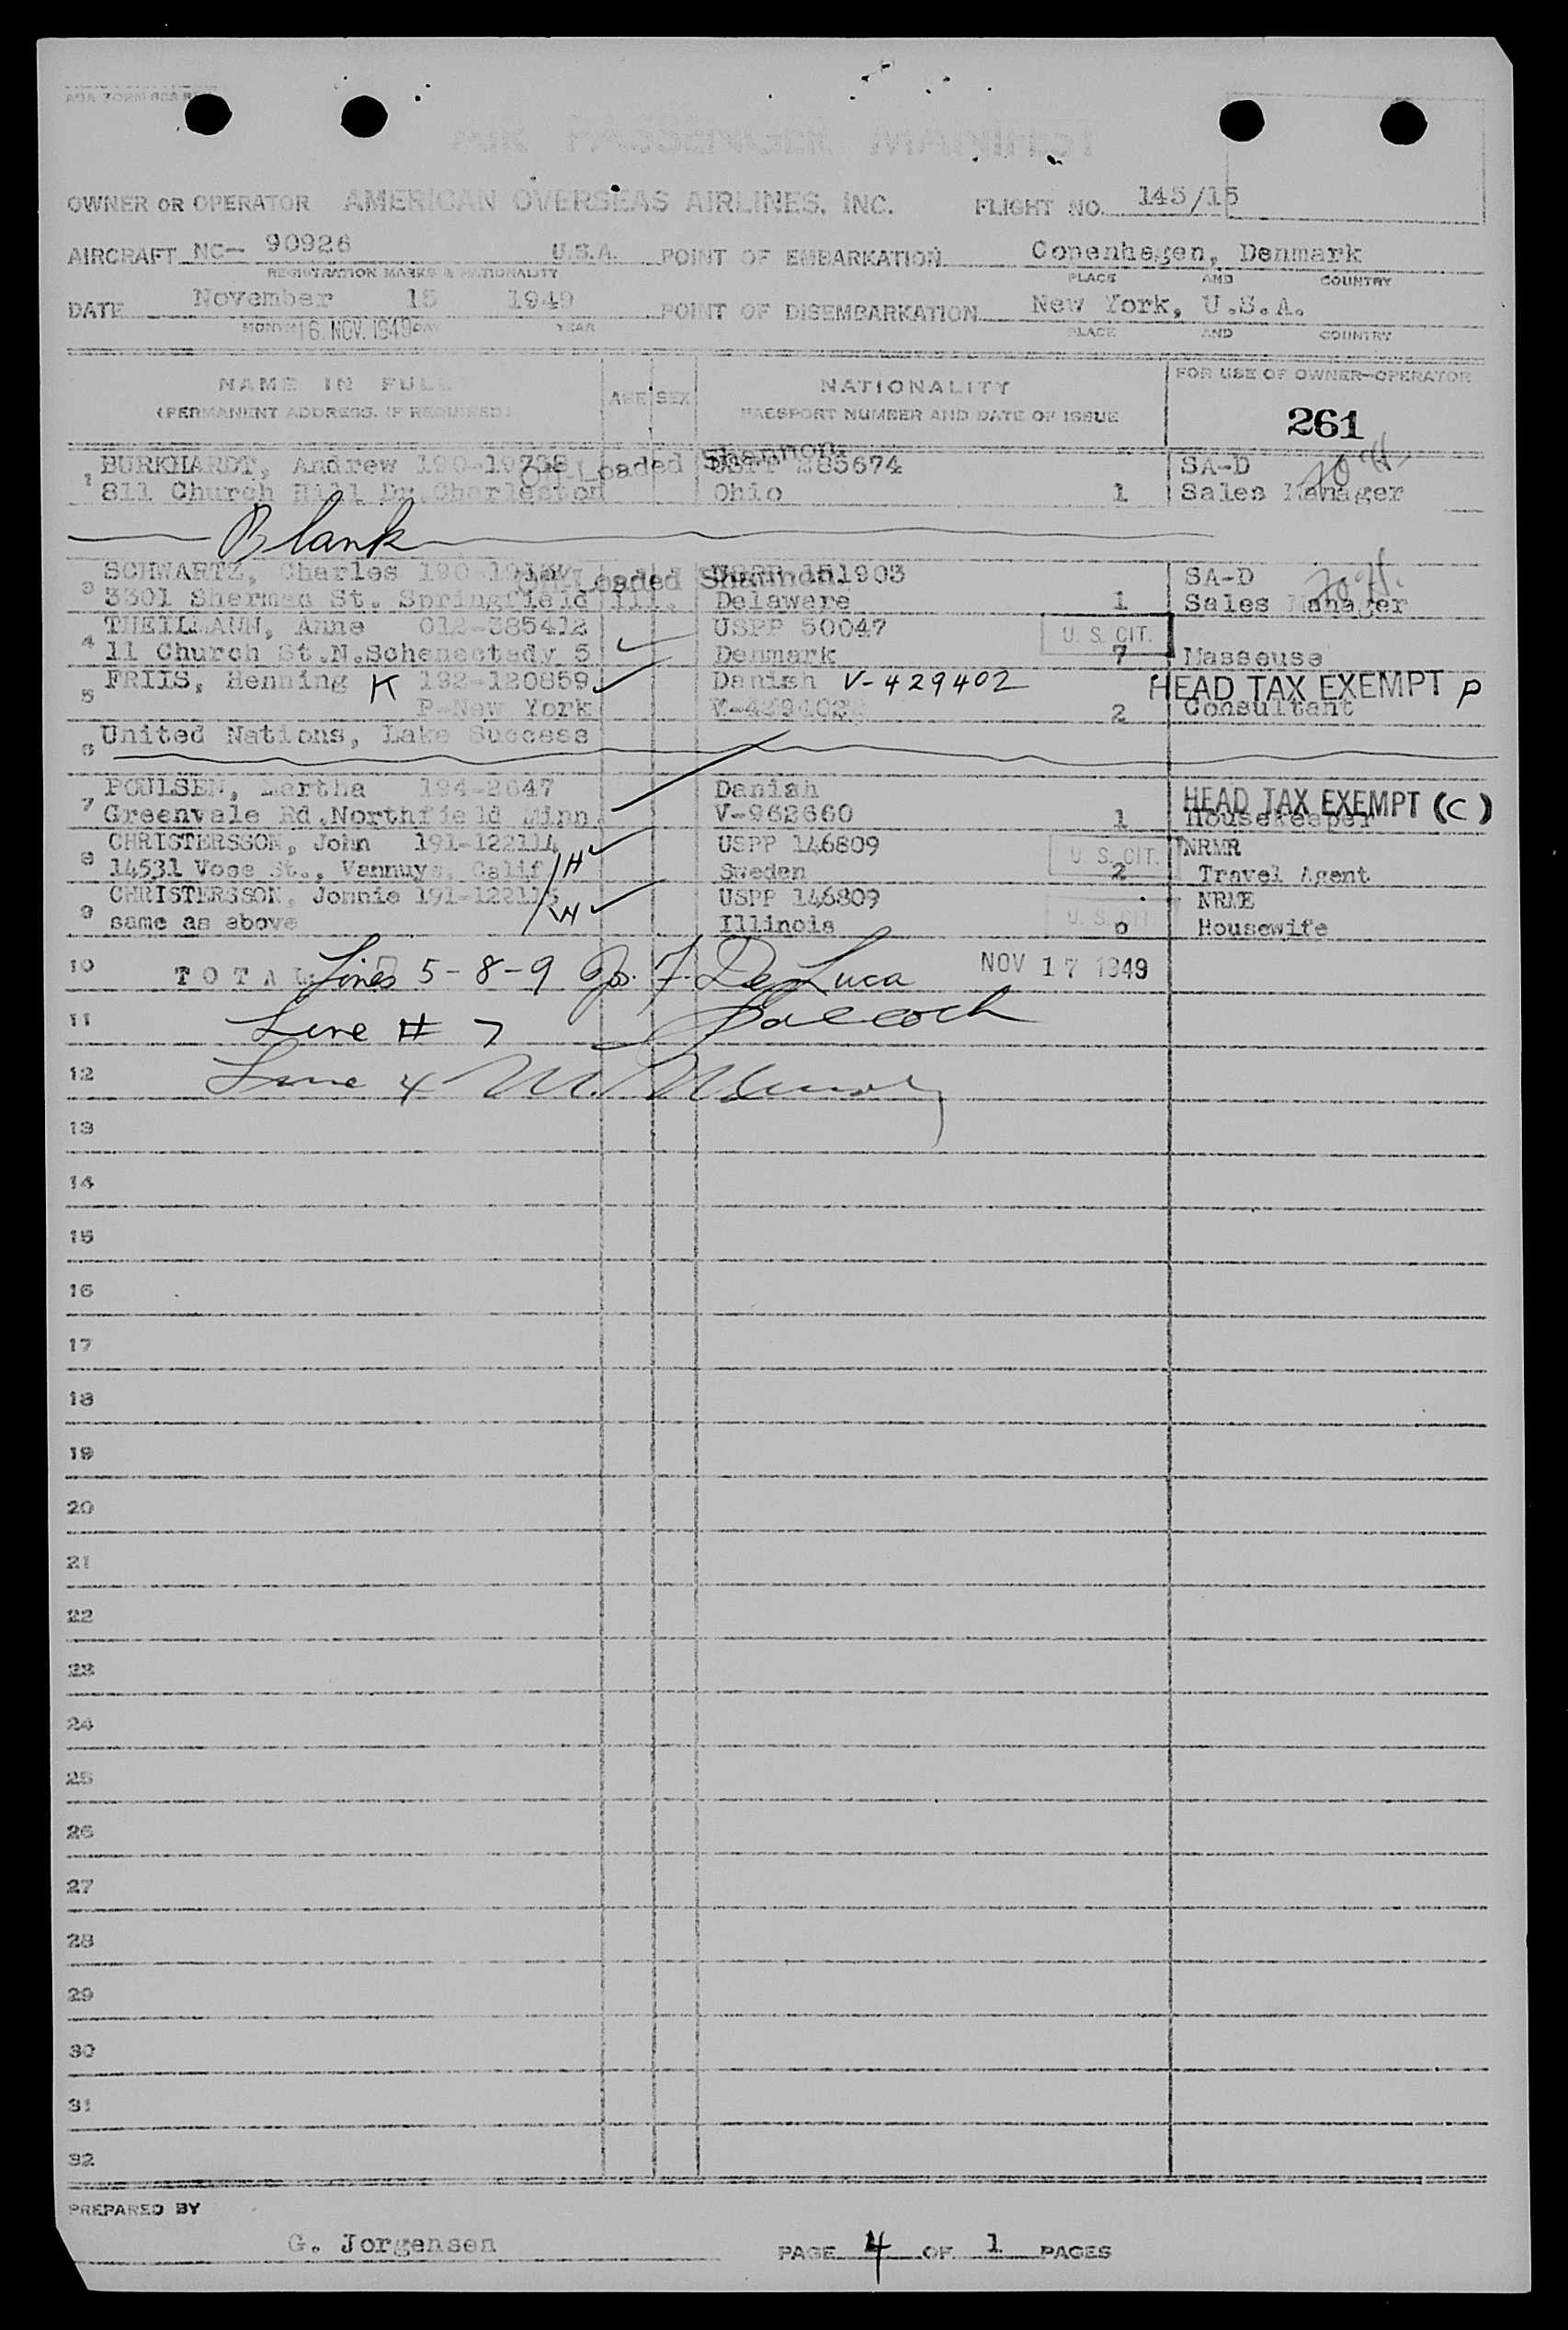 AIR PASSENGER MANIFEST
OWNER OR OPERATOR AMERICAN OVERSEAS AIRLINES, INC. FLIGHT NO. 145/15
AIRCRAFT NC- 90926 U.S.A. POINT OF EMBARKATION Copenhagen, Denmark
REGISTRATION MARKS & NATIONALITY PLACE AND COUNTRY
DATE November 15 1949 POINT OF DISEMBARKATION New York, U.S.A.
MONTH 16. NOV. 1949 DAY YEAR PLACE AND COUNTRY
NAME IN FULL AGE SEX NATIONALITY FOR USE OF OWNER-OPERATOR
(PERMANENT ADDRESS, IF REQUIRED) PASSPORT NUMBER AND DATE OF ISSUE
261
1 BURKHARDT, Andrew Off-Loaded Shannon SA-D
811 Church Hill Dr. Charleston Ohio 1 Sales Manager
Blank
3 SCHWARTZ, Charles Off-Loaded Shannon 151903 SA-D
3301 Sherman St. Springfield Ill. Delaware 1 Sales Manager
4 THEILMANN, Anne 012-385412 USPP 50047 U. S. CIT.
11 Church St.N.Schenectady 5 Denmark 7 Masseuse
5 FRIIS, Henning K 192-120859 Danish V-429402 HEAD TAX EXEMPT P
P-New York V-429402 2 Consultant
6 United Nations, Lake Success
7 POULSEN, Martha 194-2647 Danish
Greenvale Rd.Northfield Minn. V-962660 1 HEAD TAX EXEMPT (C)
Housekeeper
8 CHRISTERSSON, John 191-122114 USPP 146809 U. S. CIT. NRMR
14531 Vose St., Vannuys, Calif /H Sweden 2 Travel Agent
9 CHRISTERSSON, Jonnie 191-122115 USPP 146809 NRME
same as above /W Illinois U. S. CIT. 0 Housewife
10 TOTAL: Lines 5-8-9 Jos. F. De Luca NOV 17 1949
11 Line # 7
12 Line 4
13
14
15
16
17
18
19
20
21
22
23
24
25
26
27
28
29
30
31
32
PREPARED BY
G. Jorgensen PAGE 4 OF 1 PAGES